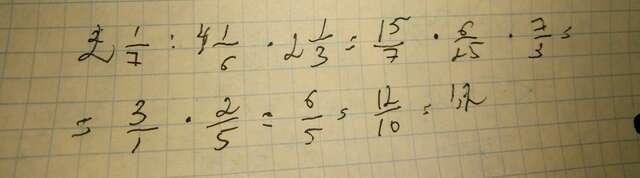 2 1/7 : 4 1/6 · 2 1/3 = 15/7 · 6/25 · 7/3 =
= 3/1 · 2/5 = 6/5 = 12/10 = 1,2